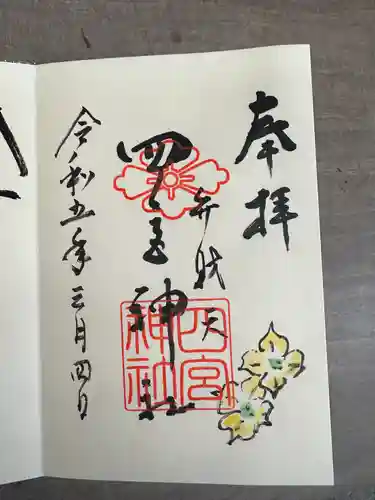 奉拝
弁財天
四之宮神社
四宮神社
令和五年三月四日